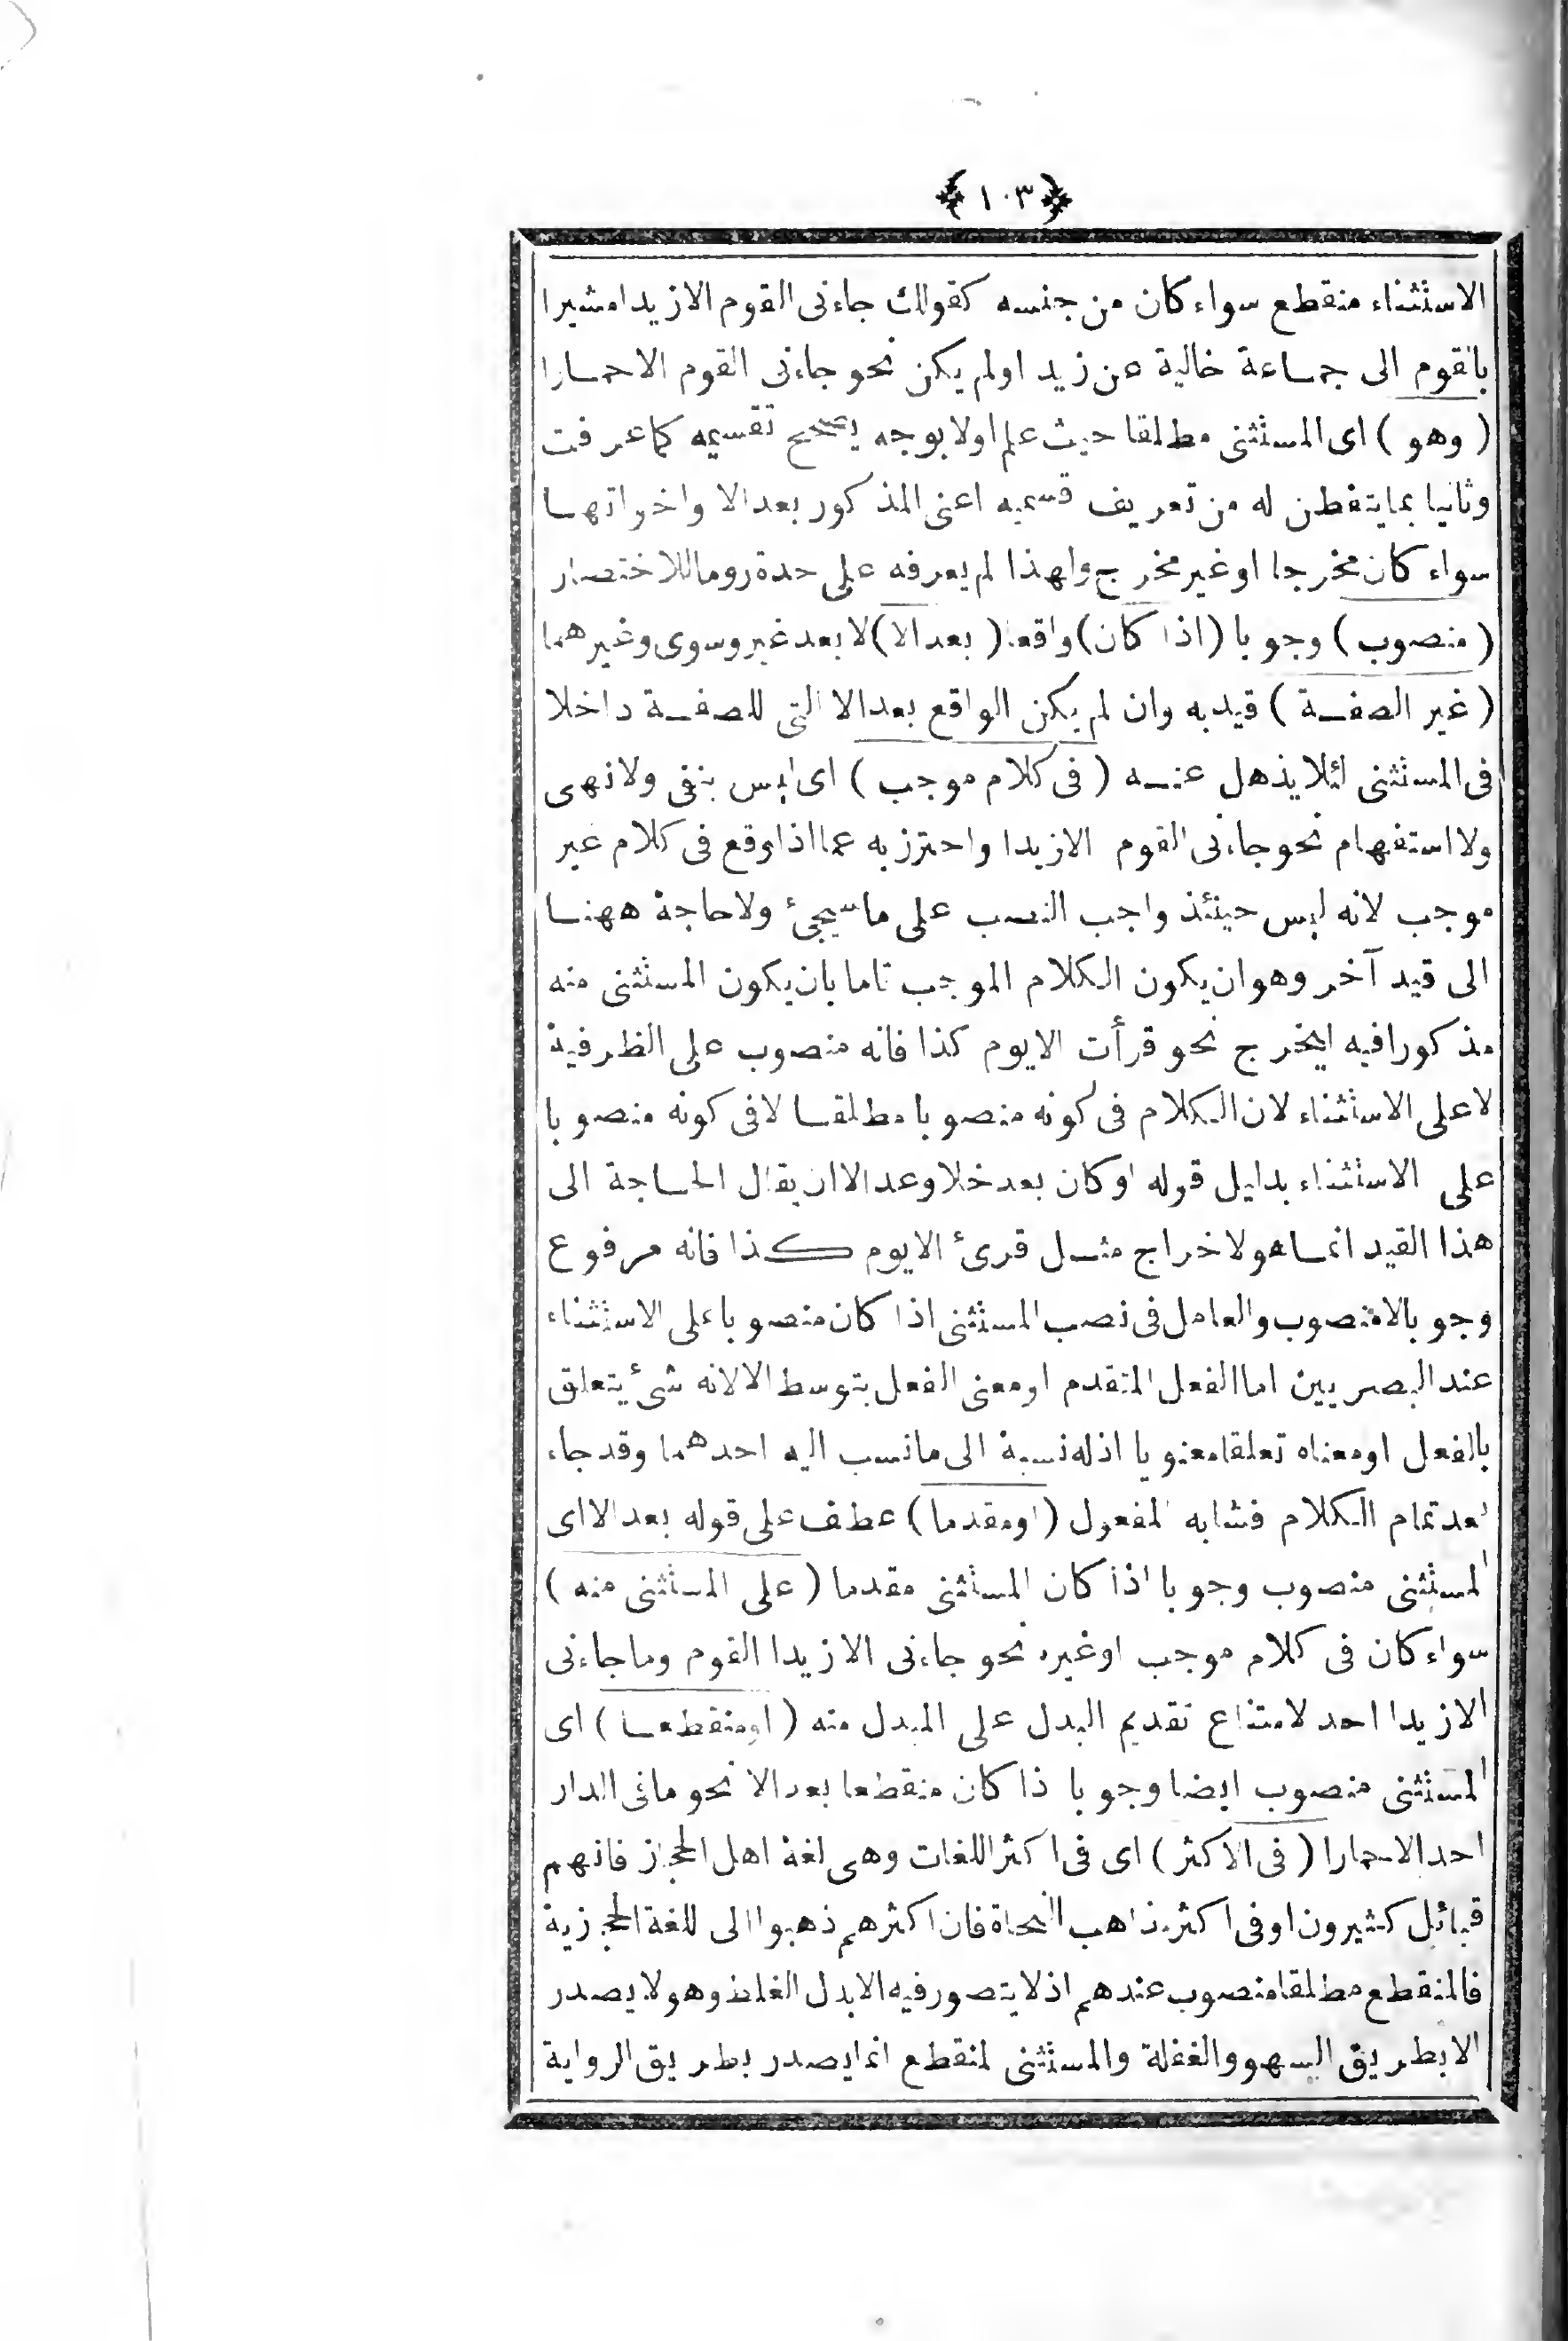 ﴿ ١٠٣ ﴾
الاستثناء منقطع سواء كان من جنسه كقولك جاءنى القوم الا زيدا مشيرا
بالقوم الى جماعة خالية عن زيد او لم يكن نحو جاءنى القوم الا حمارا
( وهو ) اى المستثنى مطلقا حيث علم اولا بوجه يصحح تقسيمه كما عرفت
وثانيا بما يتفطن له من تعريف قسميه اعنى المذكور بعد الا واخواتها
سواء كان مخرجا او غير مخرج ولهذا لم يعرفه على حدة روما للاختصار
( منصوب ) وجوبا ( اذا كان ) واقعا ( بعد الا ) لا بعد غير وسوى وغيرهما
( غير الصفة ) قيد به وان لم يكن الواقع بعد الا التى للصفة داخلا
فى المستثنى لئلا يذهل عنه ( فى كلام موجب ) اى ليس بنفى ولا نهى
ولا استفهام نحو جاءنى القوم الا زيدا واحترز به عما اذا وقع فى كلام غير
موجب لانه ليس حينئذ واجب النصب على ما سيجئ ولا حاجة ههنا
الى قيد آخر وهو ان يكون الكلام الموجب تاما بان يكون المستثنى منه
مذكورا فيه ليخرج نحو قرأت الا يوم كذا فانه منصوب على الظرفية
لا على الاستثناء لان الكلام فى كونه منصوبا مطلقا لا فى كونه منصوبا
على الاستثناء بدليل قوله او كان بعد خلا وعدا الا ان يقال الحاجة الى
هذا القيد انما هو لاخراج مثل قرئ الا يوم كذا فانه مرفوع
وجوبا لا منصوب والعامل فى نصب المستثنى اذا كان منصوبا على الاستثناء
عند البصريين اما الفعل المتقدم او معنى الفعل بتوسط الا لانه شئ يتعلق
بالفعل او معناه تعلقا معنويا اذ له نسبة الى ما نسب اليه احدهما وقد جاء
بعد تمام الكلام فشابه المفعول ( او مقدما ) عطف على قوله بعد الا اى
المستثنى منصوب وجوبا اذا كان المستثنى مقدما ( على المستثنى منه )
سواء كان فى كلام موجب او غيره نحو جاءنى الا زيدا القوم وما جاءنى
الا زيدا احد لامتناع تقديم البدل على المبدل منه ( او منقطعا ) اى
المستثنى منصوب ايضا وجوبا ذا كان منقطعا بعد الا نحو ما فى الدار
احد الا حمارا ( فى الاكثر ) اى فى اكثر اللغات وهى لغة اهل الحجاز فانهم
قبائل كثيرون او فى اكثر مذاهب النحاة فان اكثرهم ذهبوا الى للغة الحجازية
فالمنقطع مطلقا منصوب عندهم اذ لا يتصور فيه الا بدل الغلط وهو لا يصدر
الا بطريق السهو والغفلة والمستثنى لمنقطع انما يصدر بطريق الروية